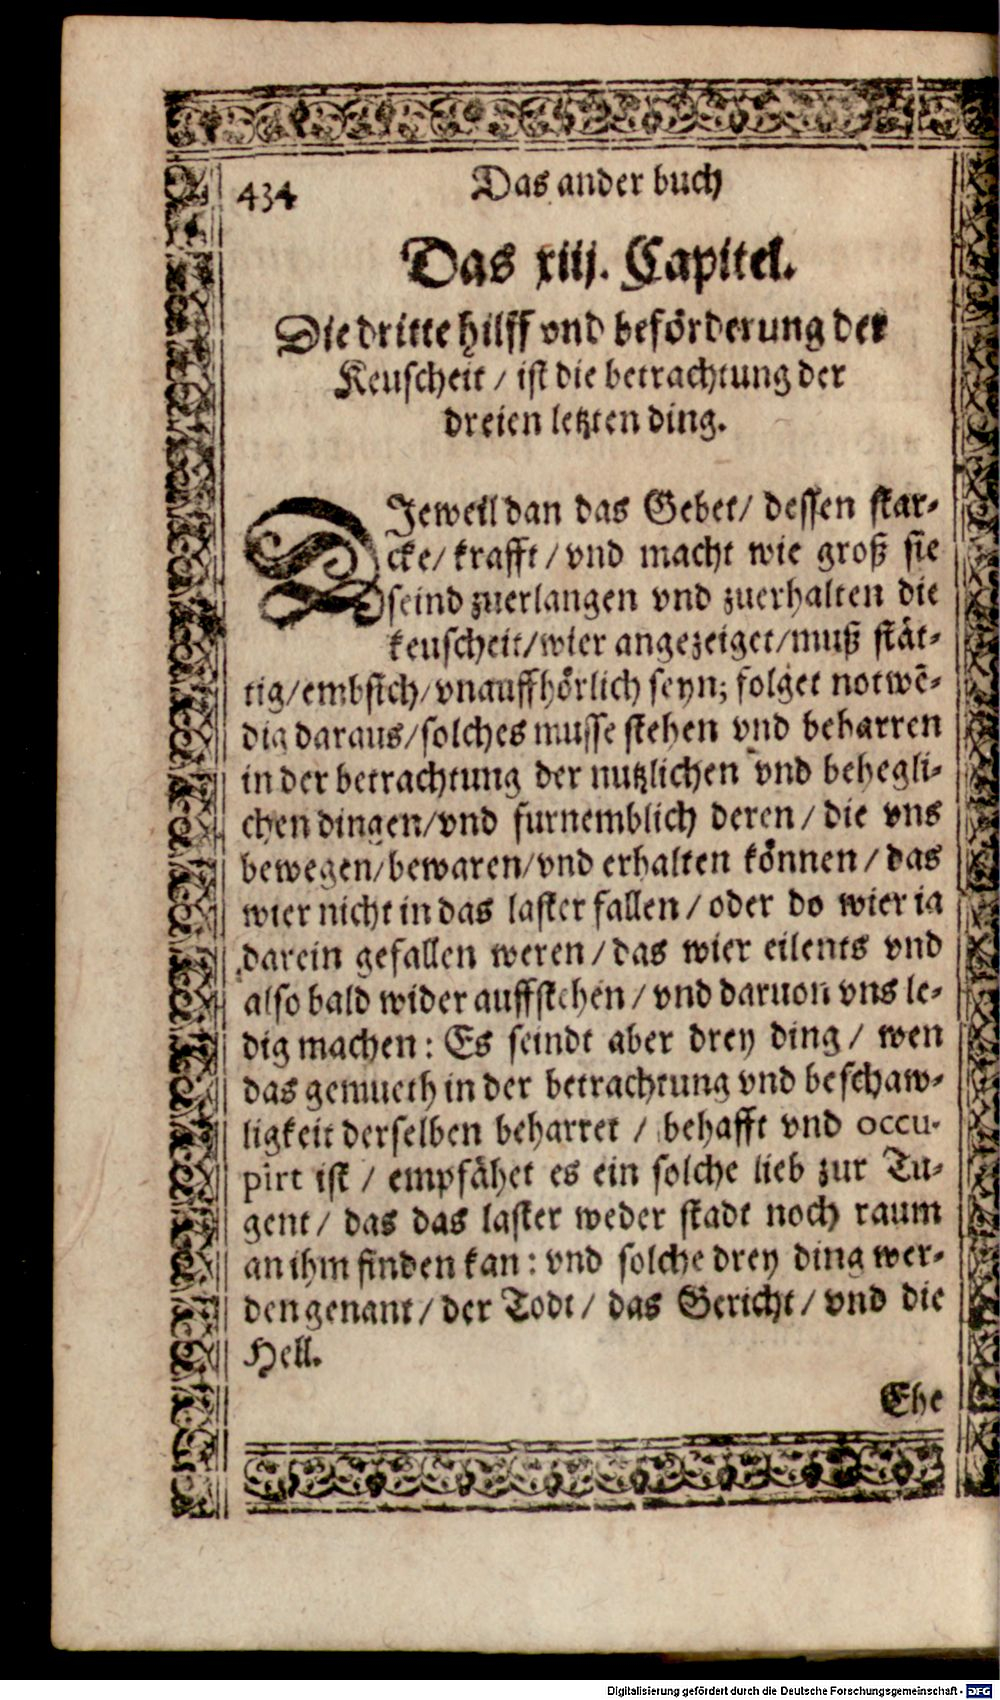 434
Das ander buch
Das xiij. Capitel.
Die dritte hilff vnd beförderung der
Keuscheit / ist die betrachtung der
dreien letzten ding.
DJeweil dan das Gebet/ dessen star-
cke/ krafft / vnd macht wie groß sie
seind zuerlangen vnd zuerhalten die
keuscheit/wier angezeiget/muß stät-
tig/embsich/vnauffhörlich seyn; folget notwē-
dig daraus/solches musse stehen vnd beharren
in der betrachtung der nutzlichen vnd behegli-
chen dingen/vnd furnemblich deren / die vns
bewegen/bewaren/vnd erhalten können / das
wier nicht in das laster fallen / oder do wier ia
darein gefallen weren / das wier eilents vnd
also bald wider auffstehen / vnd daruon vns le-
dig machen: Es seindt aber drey ding / wen
das gemueth in der betrachtung vnd beschaw-
ligkeit derselben beharret / behafft vnd occu-
pirt ist / empfähet es ein solche lieb zur Tu-
gent / das das laster weder stadt noch raum
an ihm finden kan: vnd solche drey ding wer-
den genant / der Todt / das Gericht / vnd die
Hell.
Ehe
Digitalisierung gefördert durch die Deutsche Forschungsgemeinschaft - DFG